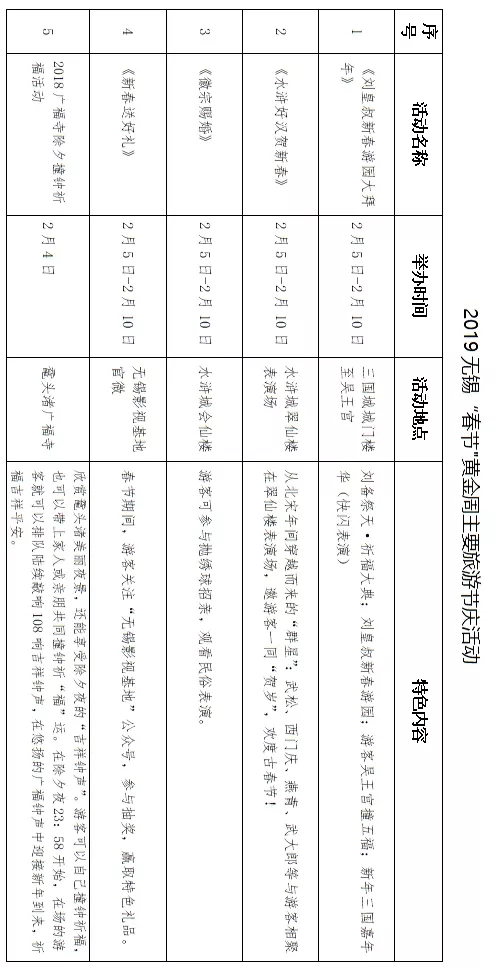 2019 无锡 “春节”黄金周主要旅游节庆活动
序号 活动名称 举办时间 活动地点 特色内容
1 《刘皇叔新春游园大拜年》 2 月 5 日-2 月 10 日 三国城城门楼至吴王宫 刘备祭天·祈福大典；刘皇叔新春游园；游客吴王宫撞五福；新年三国嘉年华（快闪表演）
2 《水浒好汉贺新春》 2 月 5 日-2 月 10 日 水浒城翠仙楼表演场 从北宋年间穿越而来的“群星”：武松、西门庆、燕青、武大郎等与游客相聚在翠仙楼表演场，邀游客一同“贺岁”，欢度古春节！
3 《徽宗赐婚》 2 月 5 日-2 月 10 日 水浒城会仙楼 游客可参与抛绣球招亲，观看民俗表演。
4 《新春送好礼》 2 月 5 日-2 月 10 日 无锡影视基地官微 春节期间，游客关注“无锡影视基地”公众号，参与抽奖，赢取特色礼品。
5 2018 广福寺除夕撞钟祈福活动 2 月 4 日 鼋头渚广福寺 欣赏鼋头渚美丽夜景，还能享受除夕夜的“吉祥钟声”。游客可以自己撞钟祈福，也可以带上家人或亲朋共同撞钟祈“福”运。在除夕夜 23：58 开始，在场的游客就可以排队陆续敲响 108 响吉祥钟声，在悠扬的广福钟声中迎接新年到来，祈福吉祥平安。